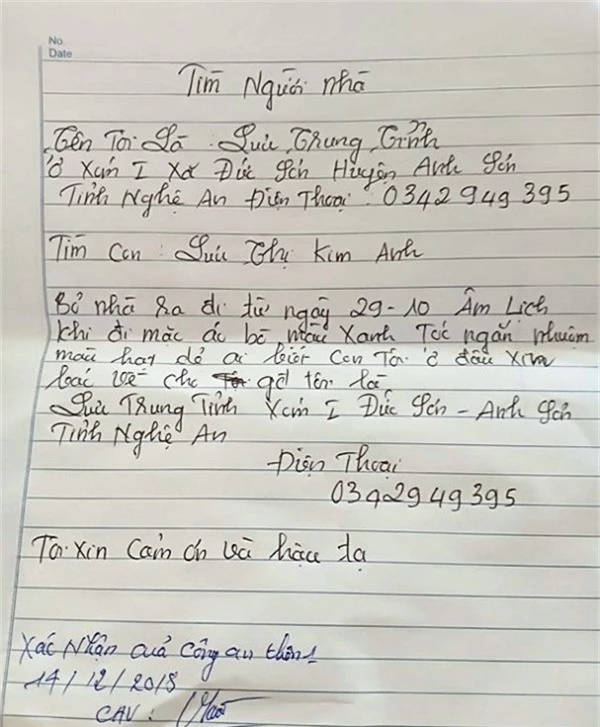 No.
Date
Tìm Người nhà
Tên Tôi Là : Lưu Trung Tình
ở Xóm I Xã Đức Sơn Huyện Anh Sơn
Tỉnh Nghệ An Điện Thoại : 0342949395
Tìm Con : Lưu Thị Kim Anh
Bỏ nhà ra đi từ ngày 29-10 Âm Lịch
khi đi mặc áo bò màu Xanh Tóc ngắn nhuộm
màu hạt dẻ ai biết Con Tôi ở đâu Xin
báo về cho gđ tôi là
Lưu Trung Tình Xóm I Đức Sơn - Anh Sơn
Tỉnh Nghệ An
Điện Thoại
0342949395
Tôi Xin Cảm ơn và hậu tạ
Xác Nhận của công an thôn 1
14/12/2018
CAV :